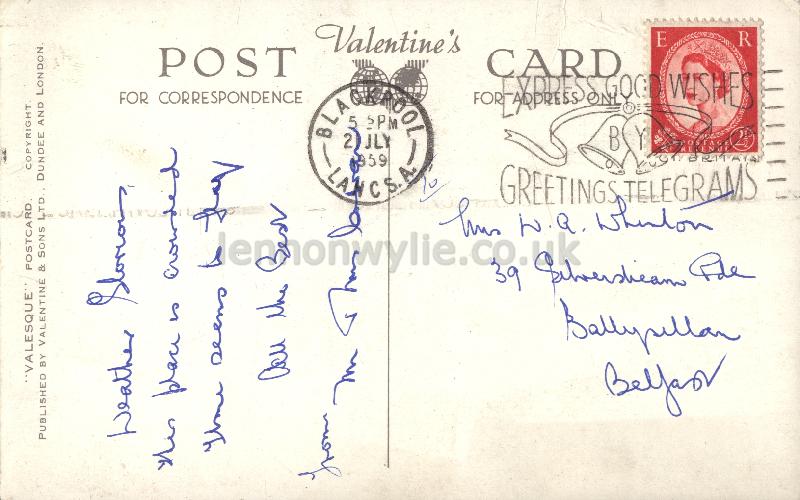 POST
Valentine's
CARD
FOR CORRESPONDENCE
FOR ADDRESS ONLY
E R
2½D
BLACKPOOL
5 - PM
2 JLY
1959
LANCS.A.
EXPRESS GOOD WISHES
BY
GREETINGS TELEGRAMS
"VALESQUE" POSTCARD. COPYRIGHT.
PUBLISHED BY VALENTINE & SONS LTD., DUNDEE AND LONDON.
Weather Glorious,
this place is crowded
Time seems to fly
All the Best
from Mr & Mrs
To
Mrs W. A. Wheaton
39 Silverstream Pde
Ballysillan
Belfast
lennonwylie.co.uk